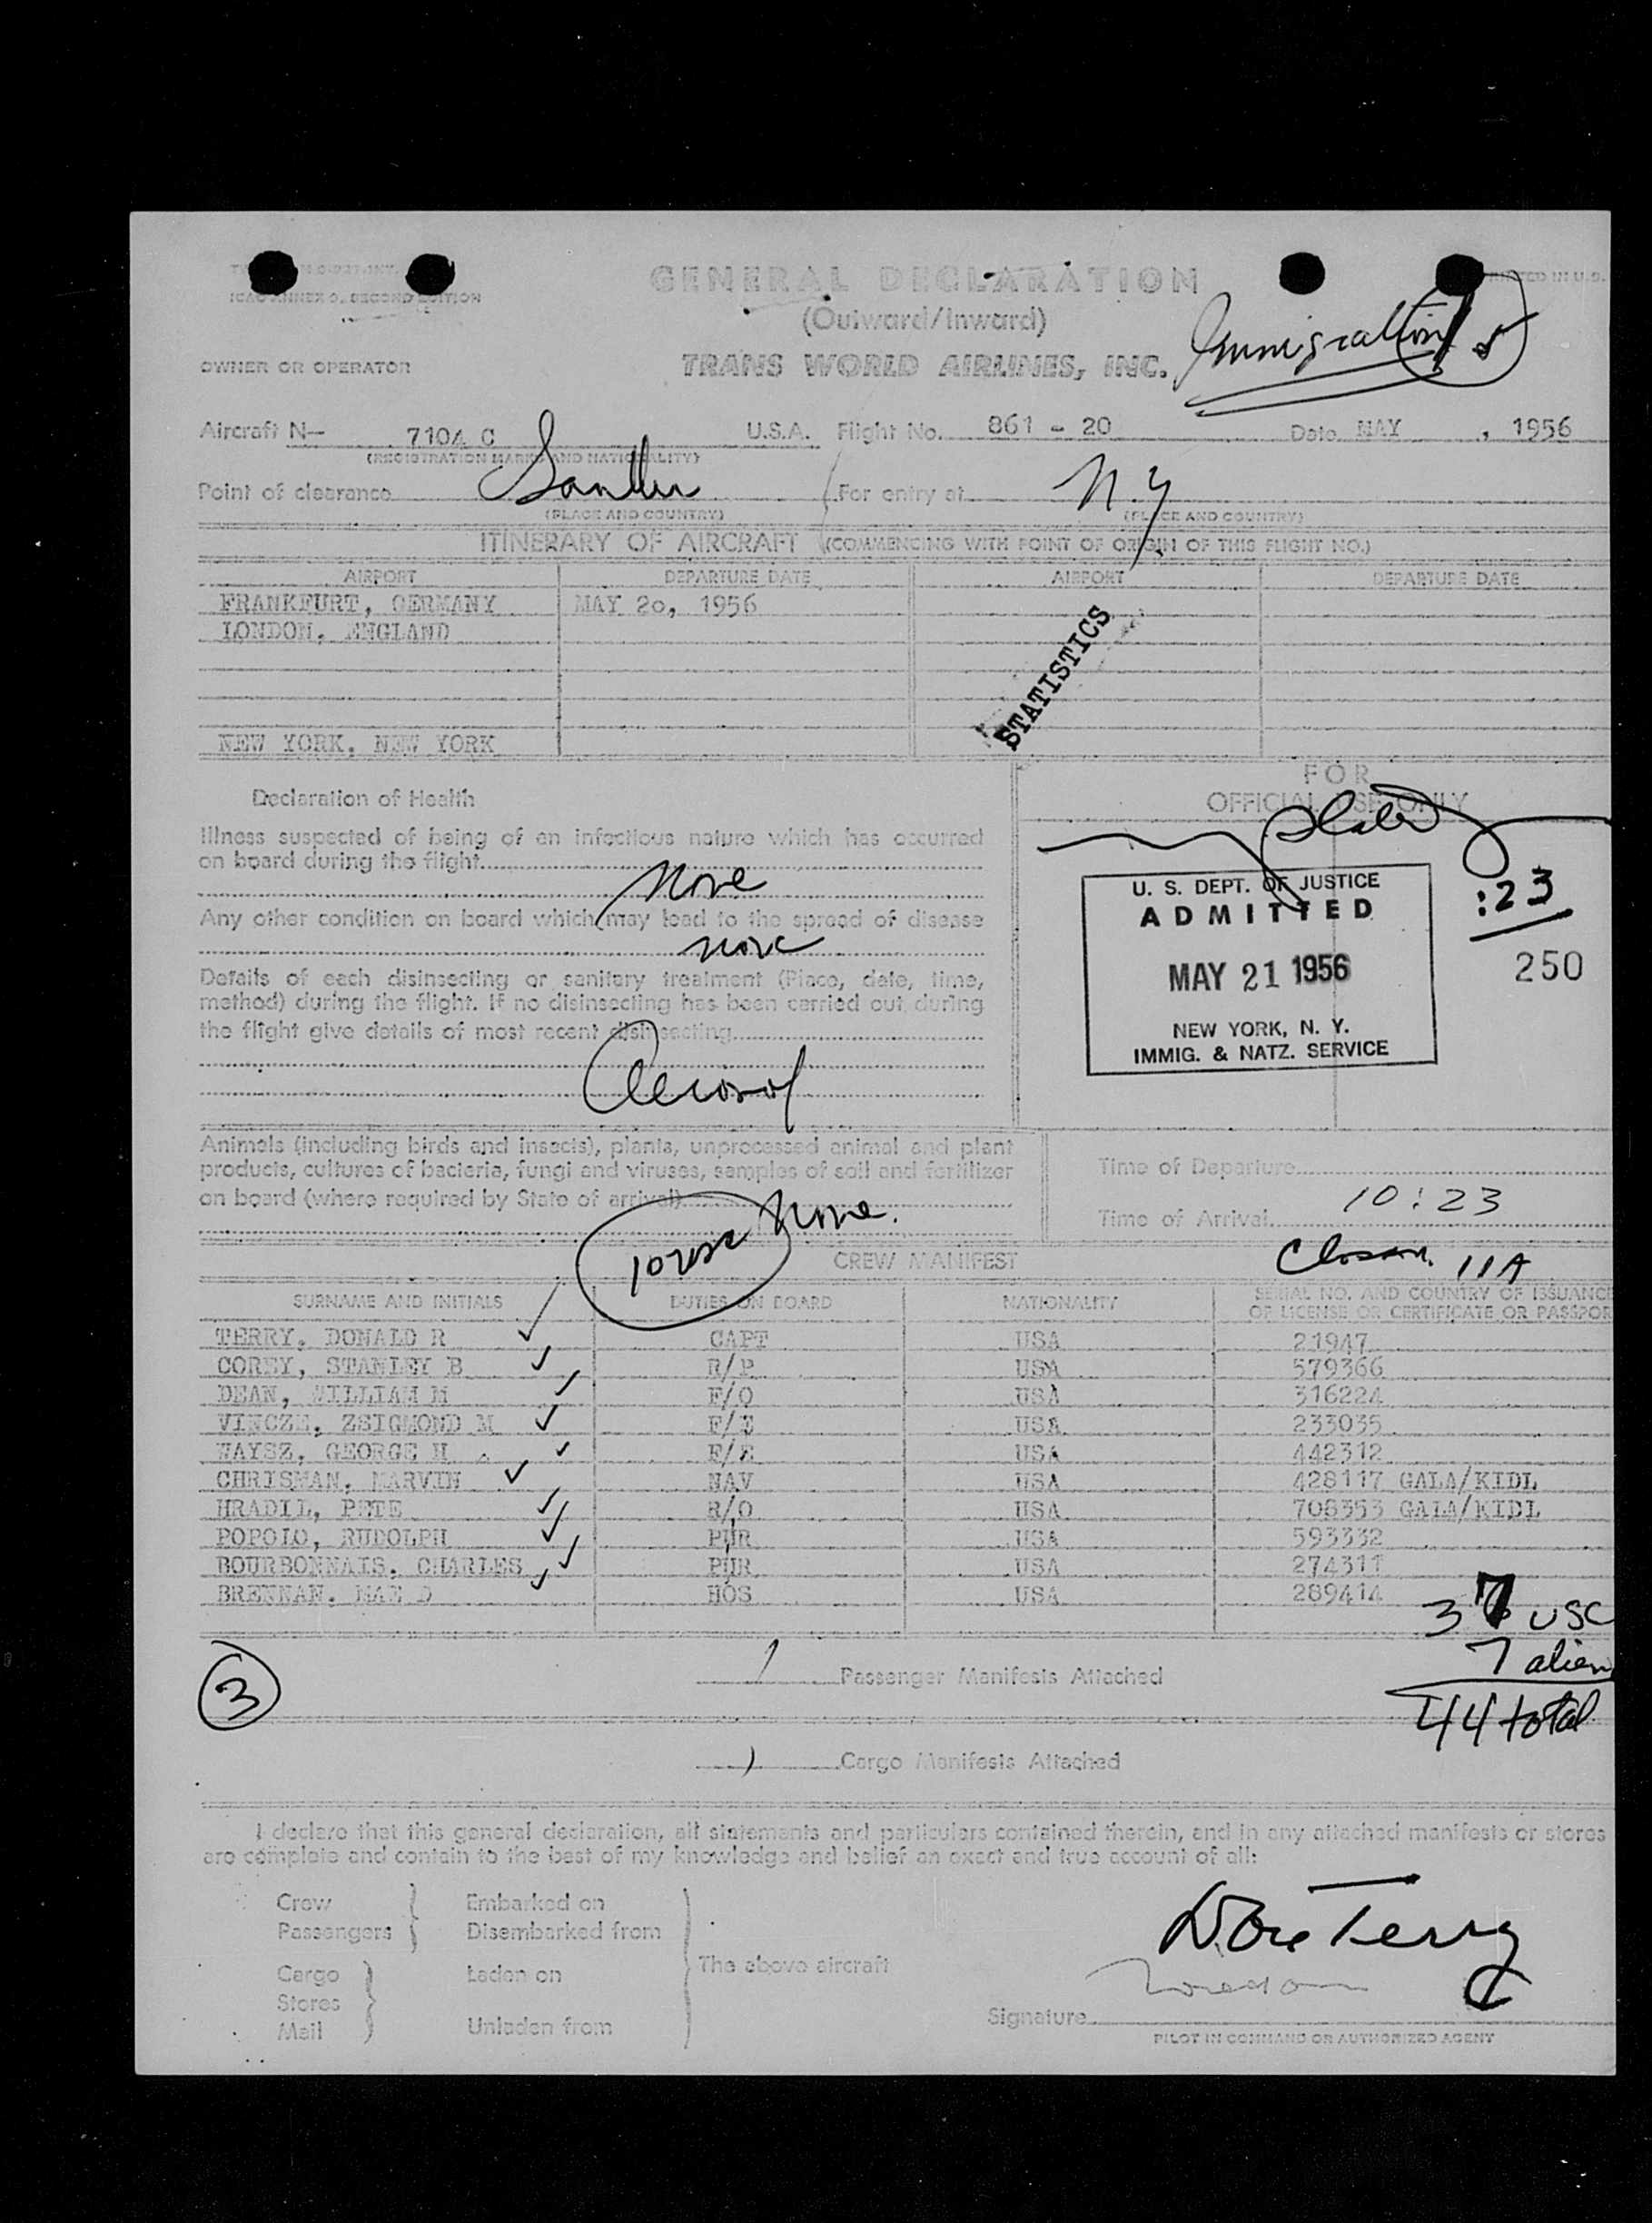 ICAO ANNEX 9, SECOND EDITION
GENERAL DECLARATION
(Outward/Inward)
Immigration
OWNER OR OPERATOR TRANS WORLD AIRLINES, INC.
Aircraft N— 7104 C U.S.A. Flight No. 861 - 20 Date MAY , 1956
(REGISTRATION MARKS AND NATIONALITY)
Point of clearance For entry at N.Y
(PLACE AND COUNTRY) (PLACE AND COUNTRY)
ITINERARY OF AIRCRAFT (COMMENCING WITH POINT OF ORIGIN OF THIS FLIGHT NO.)
AIRPORT DEPARTURE DATE AIRPORT DEPARTURE DATE
FRANKFURT, GERMANY MAY 20, 1956
LONDON, ENGLAND
STATISTICS
NEW YORK, NEW YORK
Declaration of Health
Illness suspected of being of an infectious nature which has occurred
on board during the flight
None
Any other condition on board which may lead to the spread of disease
none
Details of each disinsecting or sanitary treatment (Place, date, time,
method) during the flight. If no disinsecting has been carried out during
the flight give details of most recent disinsecting
Aerosol
FOR
OFFICIAL USE ONLY
U. S. DEPT. OF JUSTICE
ADMITTED
MAY 21 1956
NEW YORK, N. Y.
IMMIG. & NATZ. SERVICE
:23
250
Animals (including birds and insects), plants, unprocessed animal and plant
products, cultures of bacteria, fungi and viruses, samples of soil and fertilizer
on board (where required by State of arrival)
None.
Time of Departure
Time of Arrival 10:23
11A
CREW MANIFEST
SURNAME AND INITIALS DUTIES ON BOARD NATIONALITY SERIAL NO. AND COUNTRY OF ISSUANCE
OF LICENSE OR CERTIFICATE OR PASSPOR
TERRY, DONALD R CAPT USA 21947
COREY, STANLEY B R/P USA 579366
DEAN, WILLIAM M F/O USA 316224
VINCZE, ZSIGMOND M F/E USA 233035
WAYSZ, GEORGE H F/E USA 442312
CHRISMAN, MARVIN NAV USA 428117 GALA/KIDL
HRADIL, PETE R/O USA 708353 GALA/KIDL
POPOLO, RUDOLPH PUR USA 593332
BOURBONNAIS, CHARLES PUR USA 274311
BRENNAN, MAE D HOS USA 289414
37 USC
7 alien
44 total
3
1 Passenger Manifests Attached
1 Cargo Manifests Attached
I declare that this general declaration, all statements and particulars contained therein, and in any attached manifests or stores
are complete and contain to the best of my knowledge and belief an exact and true account of all:
Crew Embarked on
Passengers Disembarked from
The above aircraft
Cargo Laden on
Stores
Mail Unladen from
Don Terry
Signature
PILOT IN COMMAND OR AUTHORIZED AGENT